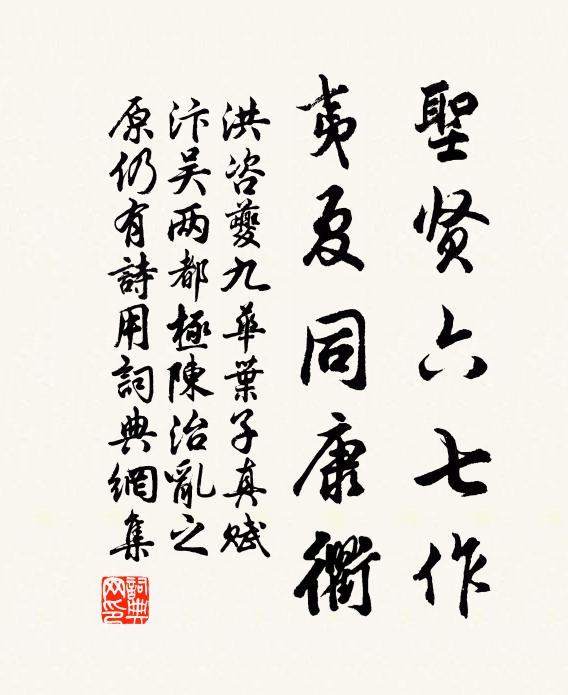 聖贤六七作
夷夏同康衢
洪咨夔九華葉子真赋
汴吴两都極陳治亂之
原仍有詩用詞典網集
詞典網印